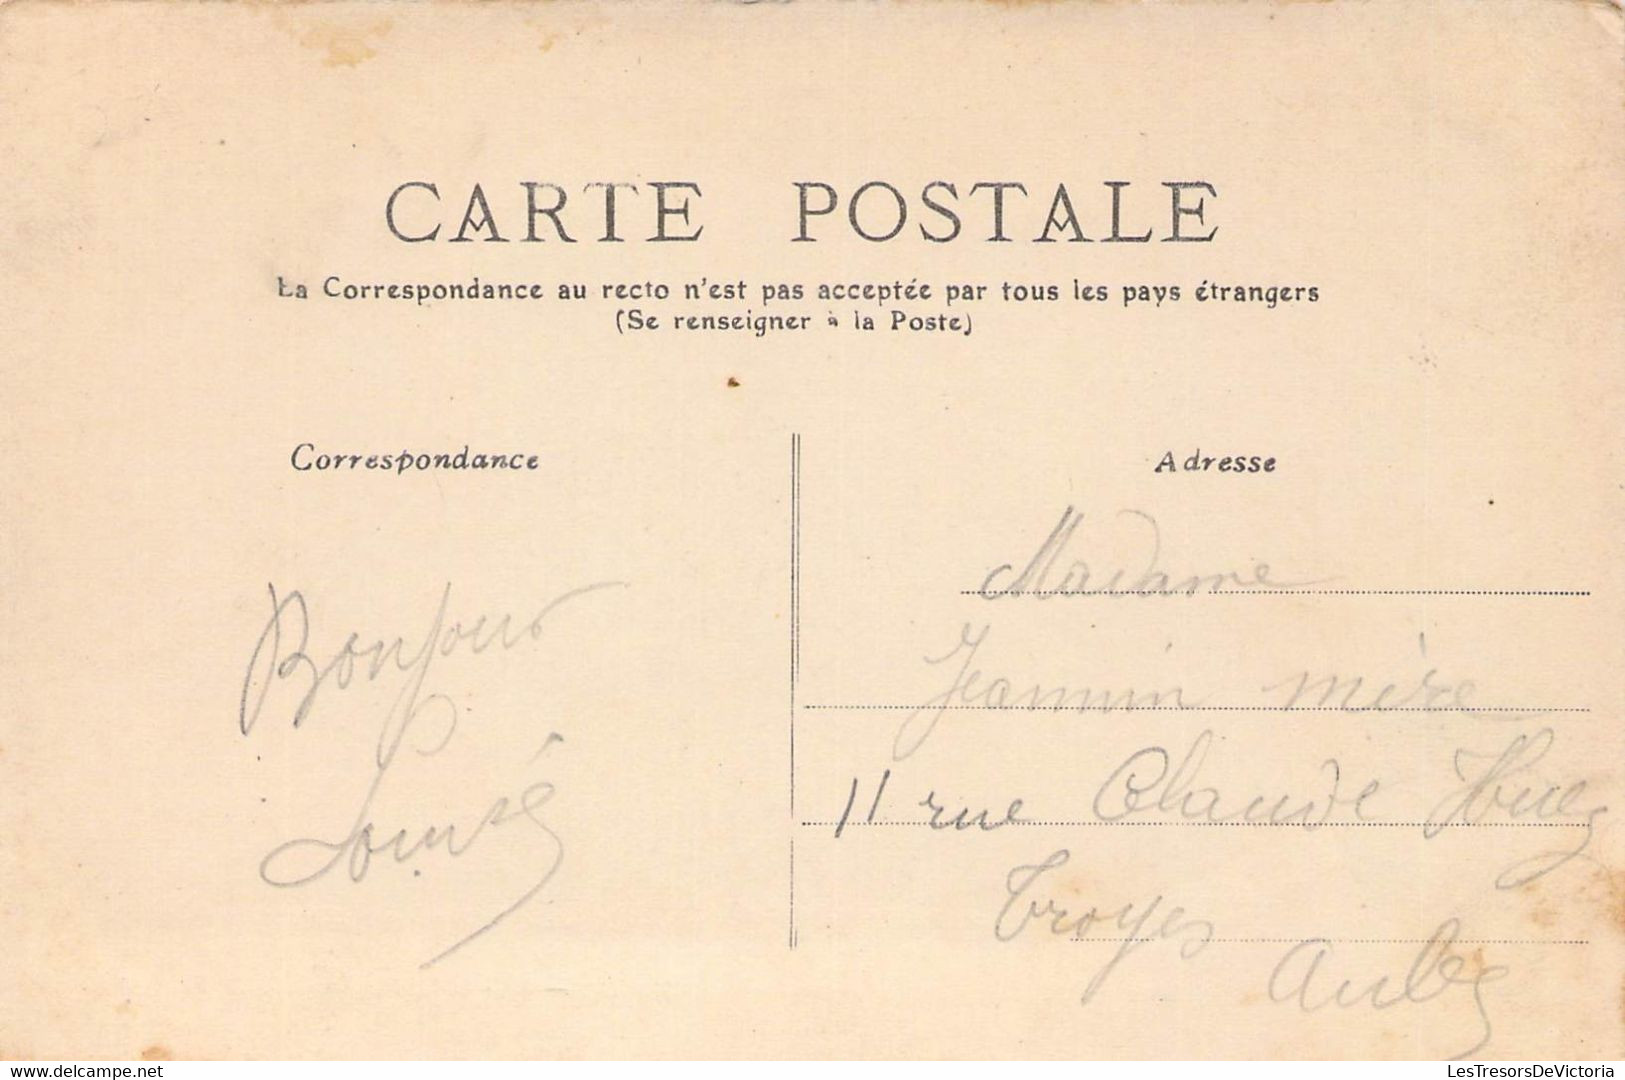 CARTE POSTALE
La Correspondance au recto n'est pas acceptée par tous les pays étrangers
(Se renseigner à la Poste)
Correspondance
Adresse
Bonjour
Madame
Jeannin mère
11 rue Claude Huez
Troyes
Aube
www.delcampe.net
LesTresorsDeVictoria